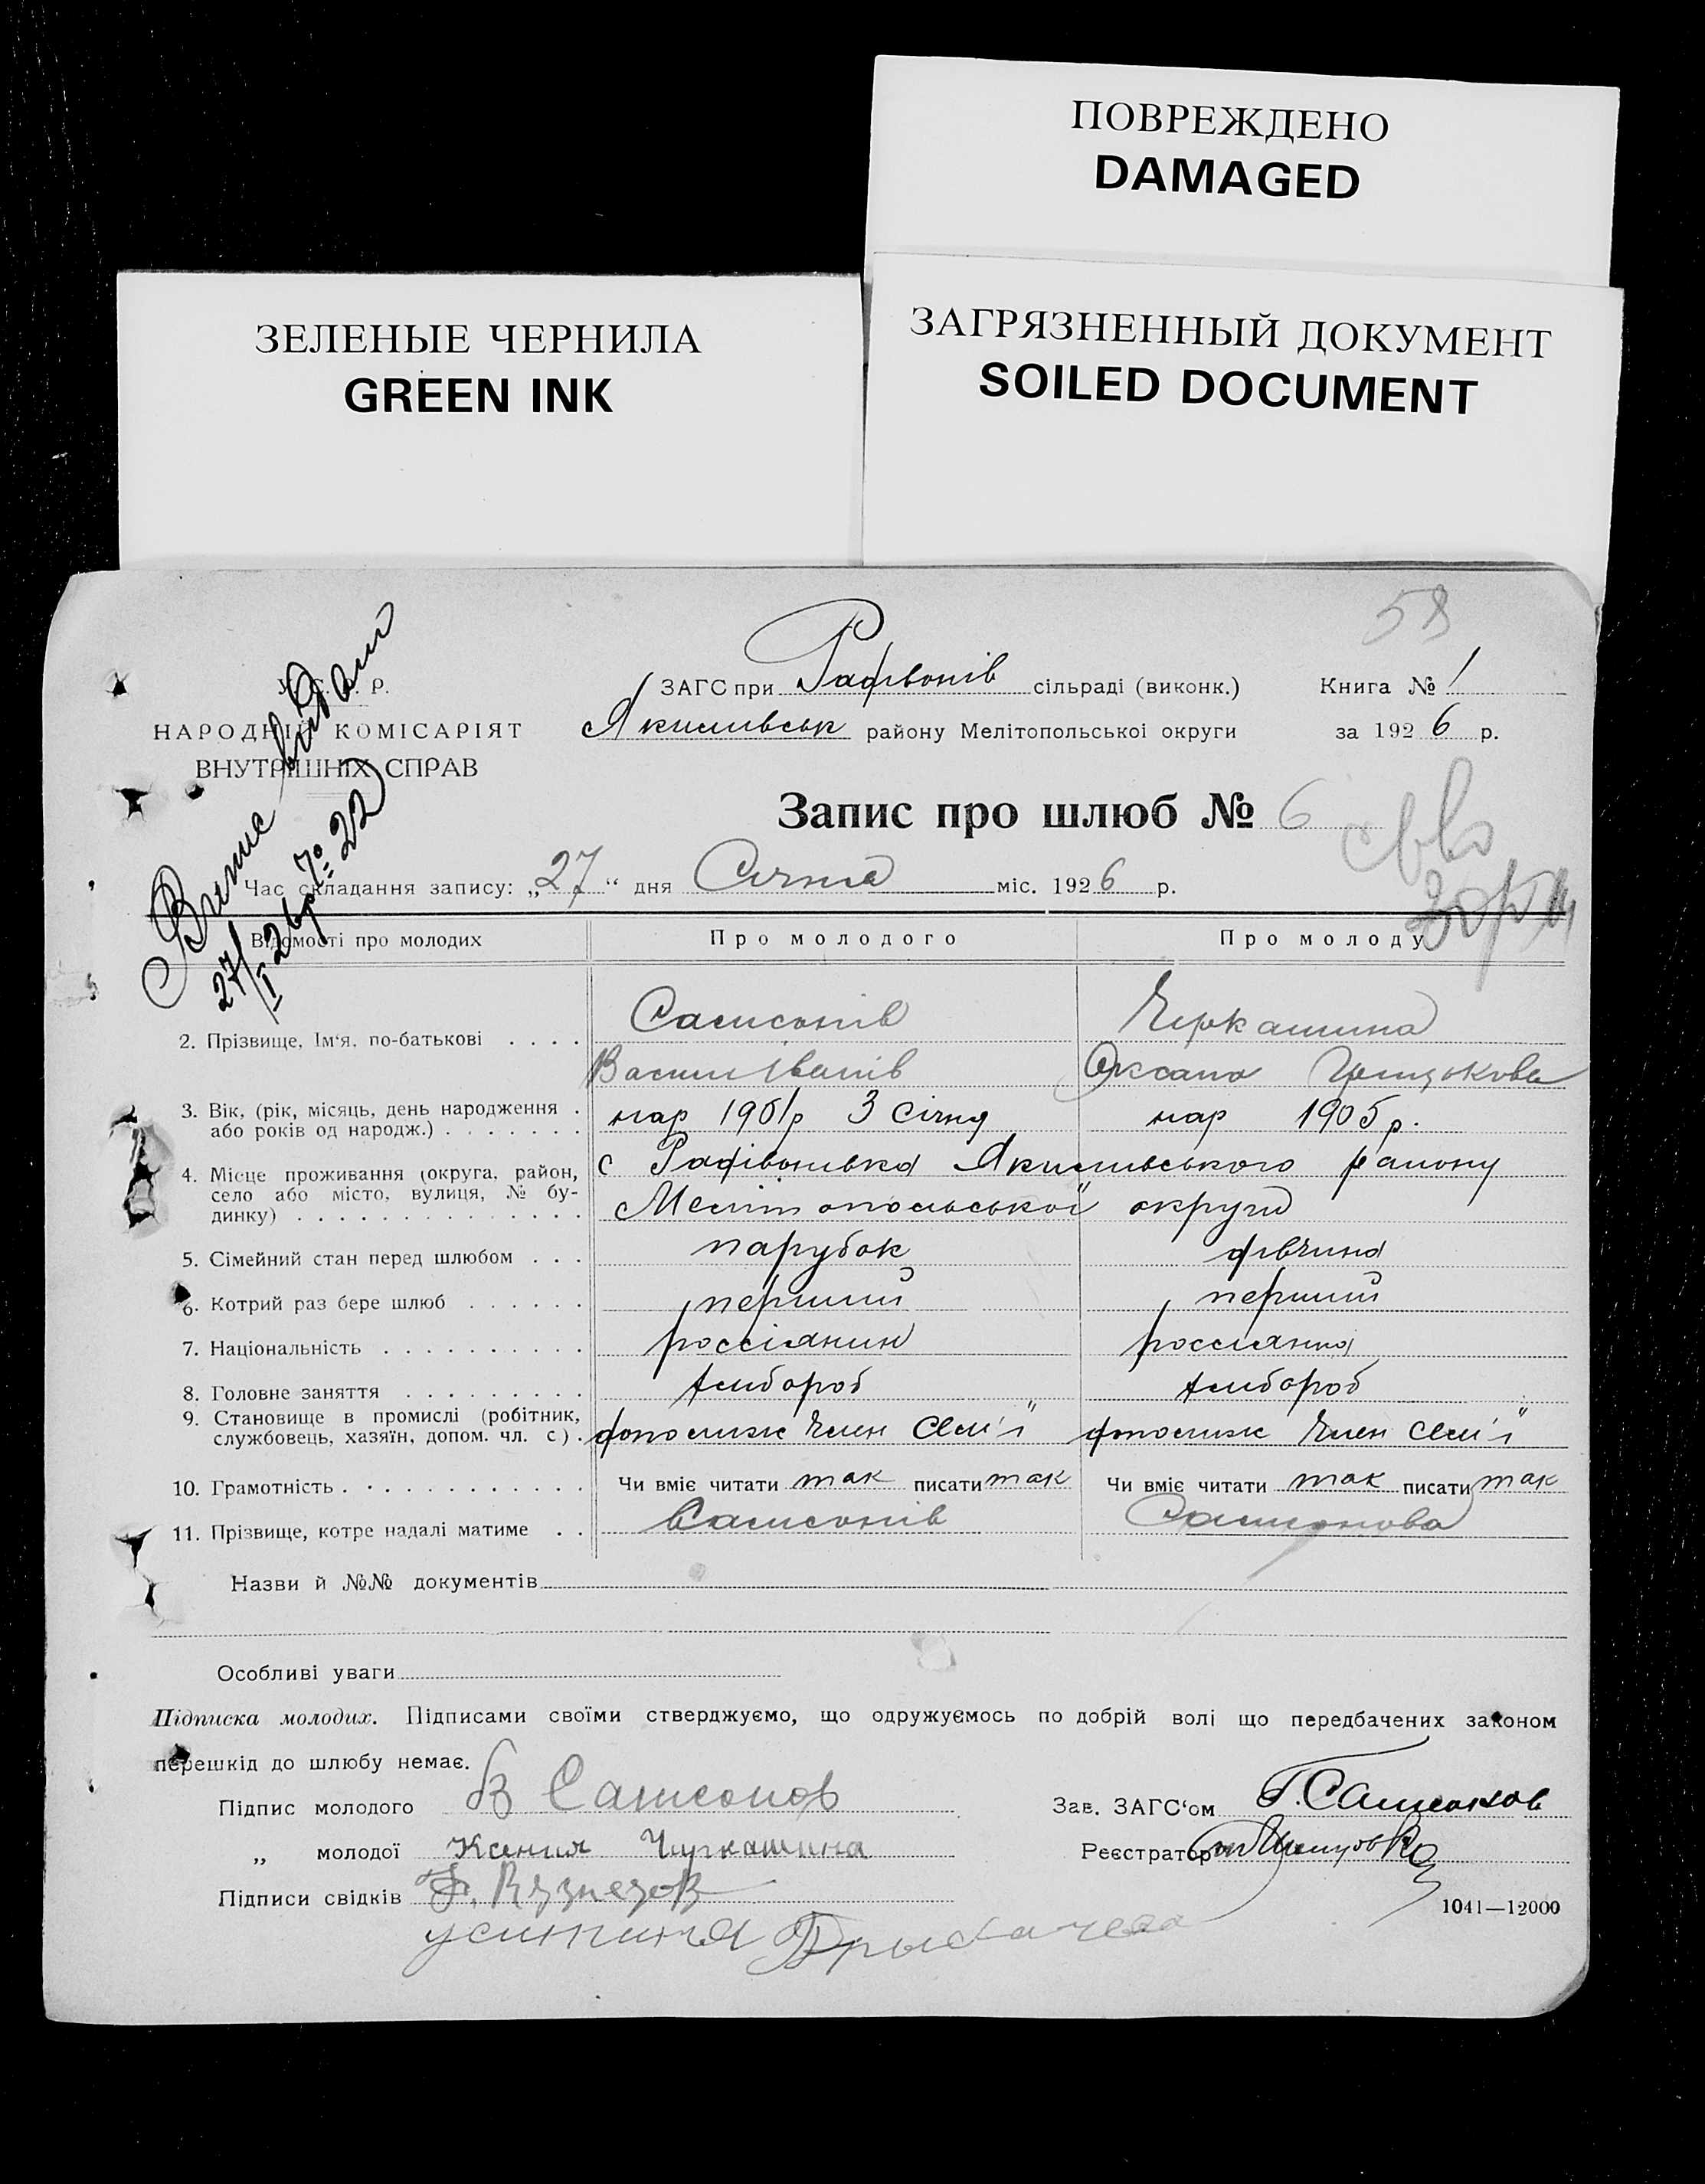 ПОВРЕЖДЕНО
DAMAGED
ЗЕЛЕНЫЕ ЧЕРНИЛА
GREEN INK
ЗАГРЯЗНЕННЫЙ ДОКУМЕНТ
SOILED DOCUMENT
58
НАРОДНІЙ КОМІСАРІЯТ
ВНУТРІШНІХ СПРАВ
ЗАГС при Радівонів сільраді (виконк.)
Якимівськ району Мелітопольської округи
Книга № 1
за 1926 р.
Випис видан
27/I 26р № 22
Запис про шлюб № 6
Час складання запису: „27“ дня Січня міс. 1926 р.
Відомості про молодих Про молодого Про молоду
2. Прізвище, Ім‘я, по-батькові . . . . Самсонів Черкашина
Васил Іванів Оксана
3. Вік, (рік, місяць, день народження . нар 1901р 3 Січня нар 1905р.
або років од народж.) . . . . . . .
4. Місце проживання (округа, район, с Радівонівка Якимівського району
село або місто, вулиця, № бу-
динку) . . . . . . . . . . . . . . Мелітопольської округи
5. Сімейний стан перед шлюбом . . . парубок дівчина
6. Котрий раз бере шлюб . . . . . . перший перший
7. Національність . . . . . . . . . . россіянин россіянка
8. Головне заняття . . . . . . . . . хлібороб хлібороб
9. Становище в промислі (робітник,
службовець, хазяїн, допом. чл. с). допомеж член семʼї допомеж член семʼї
10. Грамотність . . . . . . . . . . . . Чи вміє читати так писати так Чи вміє читати так писати так
11. Прізвище, котре надалі матиме . . Самсонів Самсонова
Назви й №№ документів
Особливі уваги
Підписка молодих. Підписами своїми стверджуємо, що одружуємось по добрій волі що передбачених законом
перешкід до шлюбу немає.
Підпис молодого В Самсонов
Зав. ЗАГС‘ом Г. Самсонов
„ молодої Ксения Чиркашина
Реєстратор
Підписи свідків Ф. Кузнецов
1041—12000
устиния